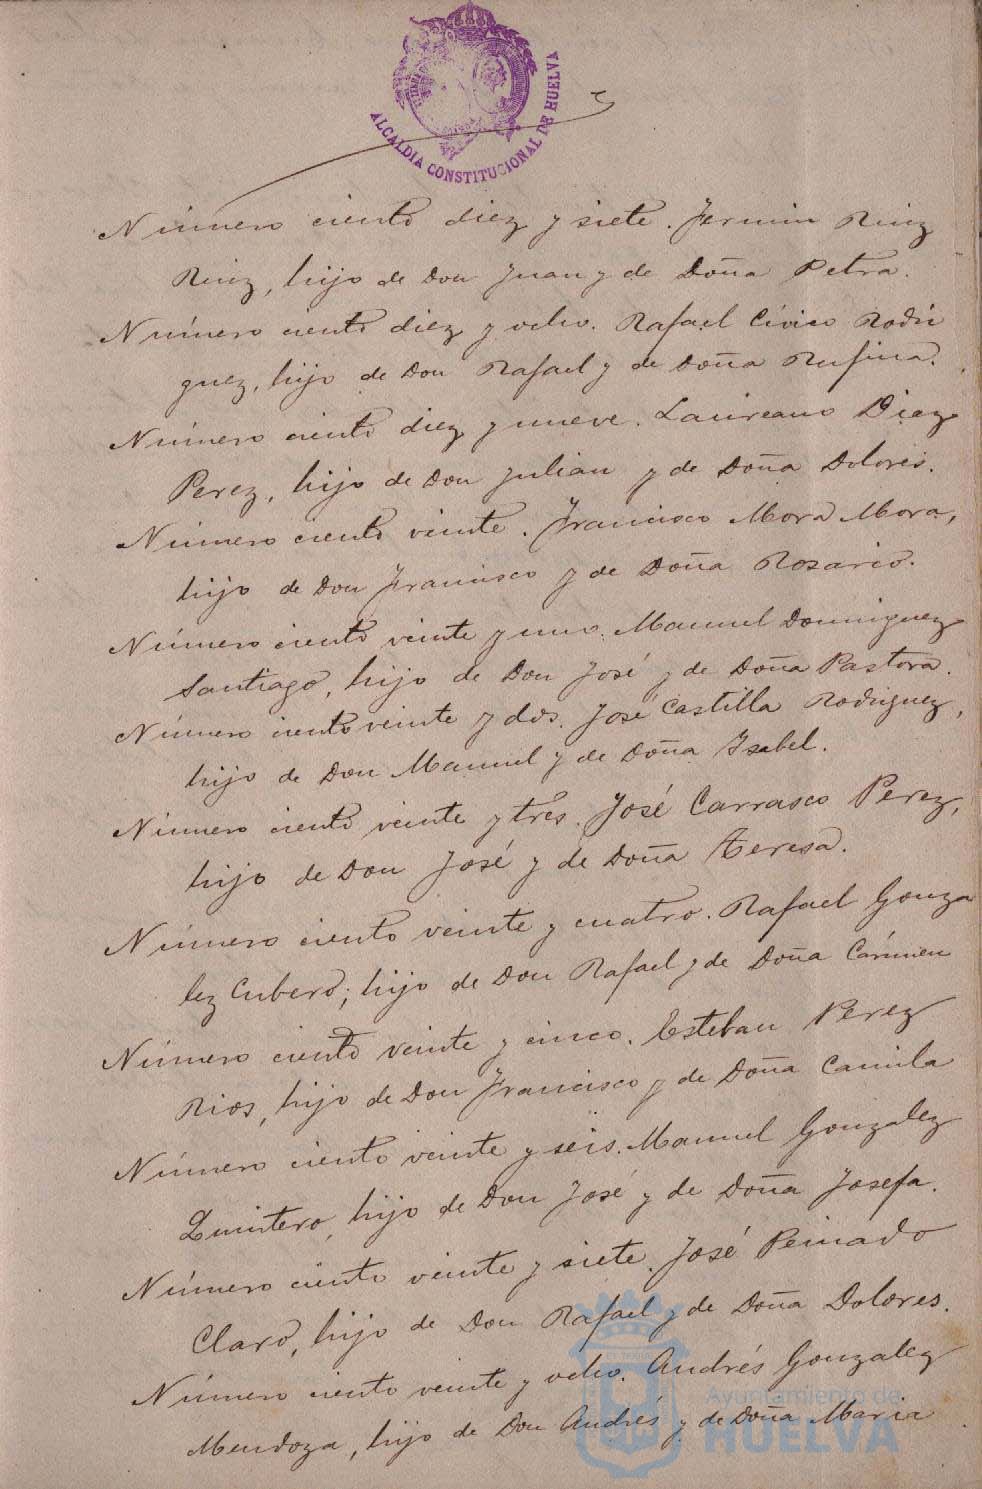 ALCALDIA CONSTITUCIONAL DE HUELVA
Número ciento diez y siete. Fermin Ruiz
Ruiz, hijo de Don Juan y de Doña Petra.
Número ciento diez y ocho. Rafael Cívico Rodri
guez, hijo de Don Rafael y de Doña Rufina.
Número ciento diez y nueve. Laureano Diaz
Perez, hijo de Don Julian y de Doña Dolores.
Número ciento veinte. Francisco Mora Mora,
hijo de Don Francisco y de Doña Rosario.
Número ciento veinte y uno. Manuel Dominguez
Santiago, hijo de Don José y de Doña Pastora.
Número ciento veinte y dos. José Castilla Rodriguez,
hijo de Don Manuel y de Doña Isabel.
Número ciento veinte y tres. José Carrasco Perez,
hijo de Don José y de Doña Teresa.
Número ciento veinte y cuatro. Rafael Gonza
lez Cubero; hijo de Don Rafael y de Doña Cármen
Número ciento veinte y cinco. Esteban Perez
Rios, hijo de Don Francisco y de Doña Camila
Número ciento veinte y seis. Manuel Gonzalez
Quintero, hijo de Don José y de Doña Josefa.
Número ciento veinte y siete. José Peinado
Claro, hijo de Don Rafael y de Doña Dolores.
Número ciento veinte y ocho. Andrés Gonzalez
Mendoza, hijo de Don Andrés y de Doña Maria
Ayuntamiento de
HUELVA